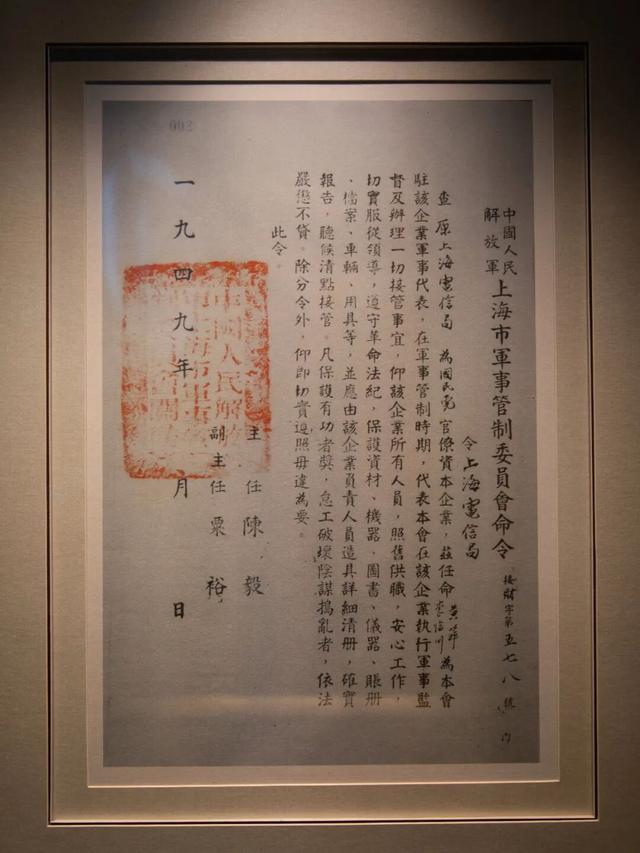 中國人民
解放軍
上海市軍事管制委員會命令
接財字第五七八號
令上海電信局
查 原上海電信局 為國民黨 官僚資本企業,茲任命 為本會
駐該企業軍事代表,在軍事管制時期,代表本會在該企業執行軍事監
督及辦理一切接管事宜,仰該企業所有人員,照舊供職,安心工作,
切實服從領導,遵守革命法紀,保護資材、機器、圖書、儀器、賬册
、檔案、車輛、用具等,並應由該企業負責人員造具詳細清册,確實
報告,聽候清點接管。凡保護有功者獎,怠工破壞陰謀搗亂者,依法
嚴懲不貸。除分令外,仰即切實遵照毋違為要。
此令。
主 任 陳 毅
副主任 粟 裕
一九四九年 月 日
002